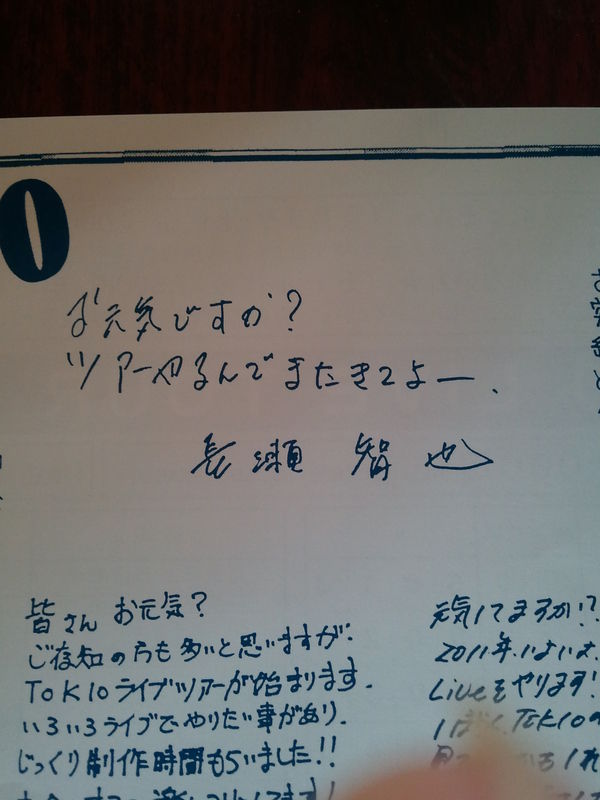 0
お元気ですか?
ツアーやるんでまたきてよー.
長瀬 智也
皆さん お元気?
ご存知の方も多いと思いますが.
TOKIOライブツアーが始まります.
いろいろライブでやりたい事があり.
じっくり制作時間もらいました!!
元気してますか!?
2011年.いよいよ.
Liveをやります!
TOKIOの